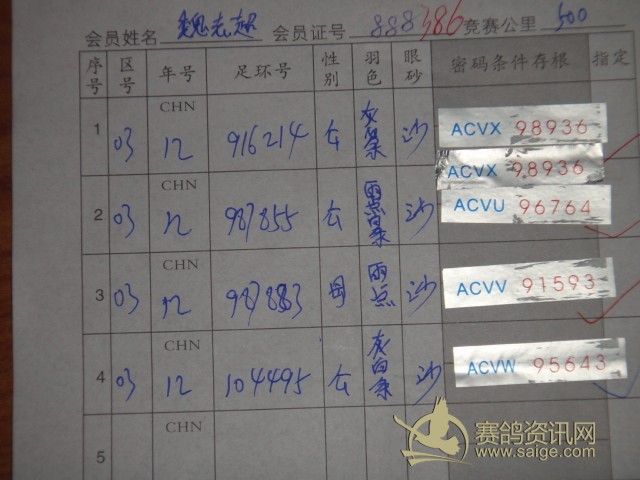 会员姓名 魏志超 会员证号 888386 竞赛公里 500
序号 区号 年号 足环号 性别 羽色 眼砂 密码条件存根 指定
1 03 CHN 12 916214 仝 灰白条 沙 ACVX 98936
ACVX 98936
2 03 CHN 12 987855 仝 雨点白条 沙 ACVU 96764
3 03 CHN 12 987883 母 雨点 沙 ACVV 91593
4 03 CHN 12 104495 仝 灰白条 沙 ACVW 95643
5 CHN
赛鸽资讯网
www.saige.com